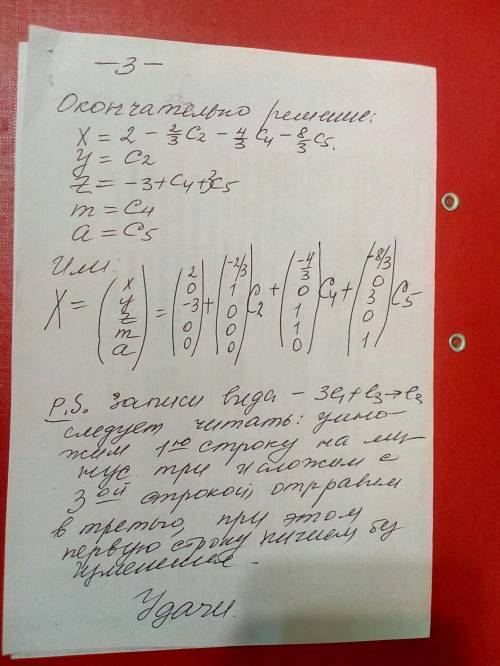 -3-
Окончательно решение:
x = 2 - 2/3 C2 - 4/3 C4 - 8/3 C5.
y = C2
z = -3 + C4 + 3C5
m = C4
a = C5
Или:
X = (x y z m a) = (2 0 -3 0 0) + (-2/3 1 0 0 0) C2 + (-4/3 0 1 1 0) C4 + (-8/3 0 3 0 1) C5
P.S. Записи вида -3l1+l3→l3
следует читать: умно-
жим 1ую строку на ми-
нус три и сложим с
3ой строкой, отправим
в третью, при этом
первую строку пишем без
изменения.
Удачи.